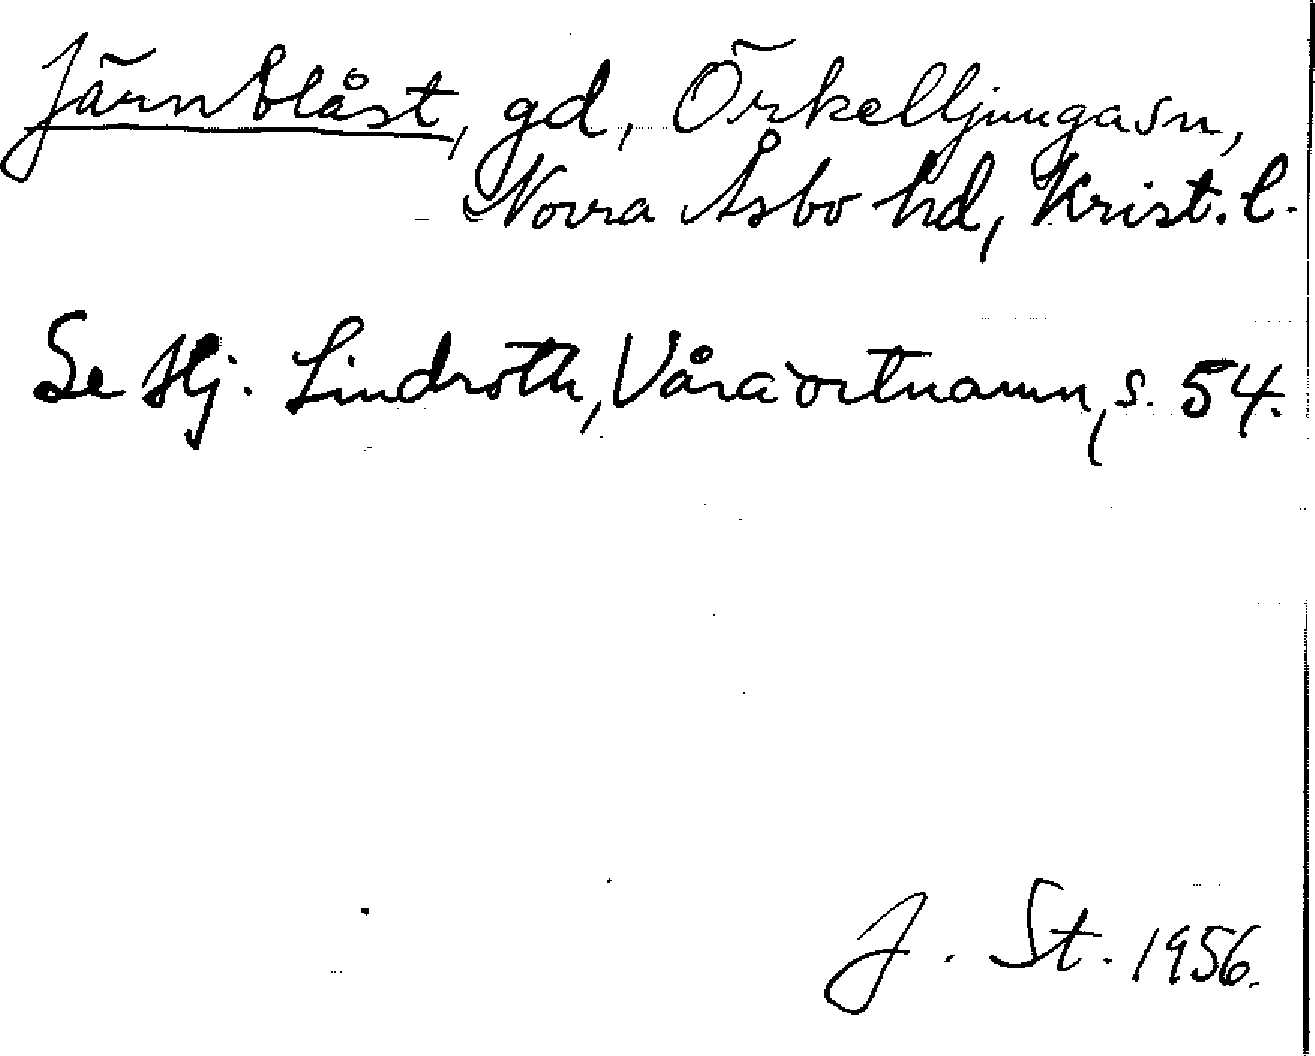 Järnblåst, gd, Örkelljunga sn,
Norra Åsbo hd, Krist. l.
Se Hj. Lindroth, Våra ortnamn, s. 54.
J. St. 1956.